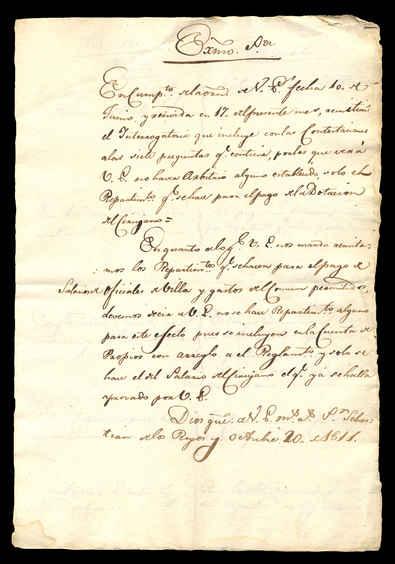 Exmo. Sor.
En Cumpto. de la orden de V. E. fecha 10. de
Junio, y recivida en 17. del presente mes, remitimos
el Interrogatorio que incluye con las Contestaciones
a las siete preguntas qe. contiene, por las que verá
V. E. no haver Arbitrio alguno establecido, solo el
Repartimto. qe. se hace para el pago de la Dotacion
del Cirujano=
En quanto a lo qe. V. E. nos manda remita-
mos los Repartimtos. qe. se hacen para el pago de
Salarios de Oficiales de Villa y gastos del Comun
devemos decir a V. E. no se hace Repartimto. alguno
para este efecto pues se incluyen en la Cuenta de
Propios con arreglo a el Reglamto. y solo se
hace el del Salario del Cirujano el qe. ya se halla
aprovado por V. E.
Dios gue. a V. E. ms. as. Sn. Sebas-
tian de los Reyes y Octubre 20. de 1811.